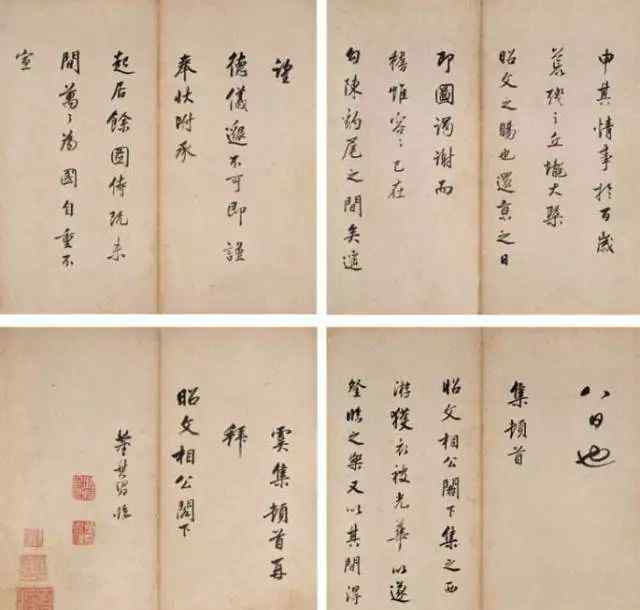 八日也
集頓首
昭文相公閣下集之西
游獲衣被光華以遂
登臨之樂又以其間得
申其情事於百歲
之丘壠大槩
昭文之賜也還京之日
即圖謁謝而
惟容〻已在
勾陳豹尾之間矣遥
望
德儀邈不可即謹
奉狀附承
起居餘圖侍既未
間萬〻為國自重不
宣
虞集頓首再
拜
昭文相公閣下
董其昌臨